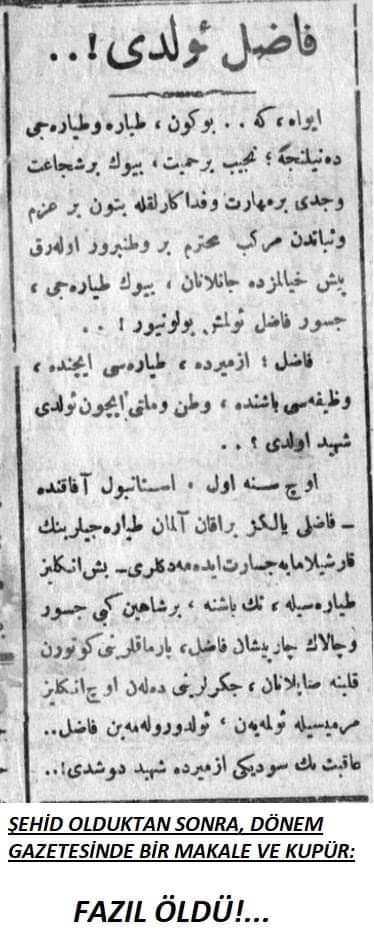 فاضل ئولدی!..
ایواه، كه .. بوكون، طیاره وطیاره‌جی
ده‌نیلنجه؛ نجیب برحمیت، بیوك برشجاعت
وجدی برمهارت وفداكارلقله بتون بر عزم
وثباتدن مركب محترم بر وطنپرور اوله‌رق
پیش خیالمزده جانلانان، بیوك طیاره‌جی،
جسور فاضل ئولمش بولونیور! ..
فاضل؛ ازمیرده، طیاره‌سی ایچنده،
وظیفه‌سی باشنده، وطن وملتی ایچون ئولدی
شهید اولدی؟ ..
اوچ سنه اول، استانبول آفاقنده
ـ فاضلی یالكز براقان آلمان طیاره‌جیلرینك
قارشیلامایه جسارت ایده‌مه‌دكلری ـ بش انكلیز
طیاره‌سیله، تك باشنه، برشاهین كبی جسور
وچالاك چارپیشان فاضل، پارماقلرینی كوتورن
قلبنه صاپلانان، جكرلرینی ده‌لن اوچ انكلیز
مرمیسیله ئولمه‌ین، ئولدوروله‌مه‌ین فاضل..
عاقبت پك سودیكی ازمیرده شهید دوشدی!..
ŞEHİD OLDUKTAN SONRA, DÖNEM
GAZETESİNDE BİR MAKALE VE KUPÜR:
FAZIL ÖLDÜ!...